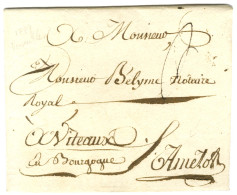 A Monsieur
Monsieur Bélyme Notaire
Royal
A Viteaux
en Bourgogne
Amelot